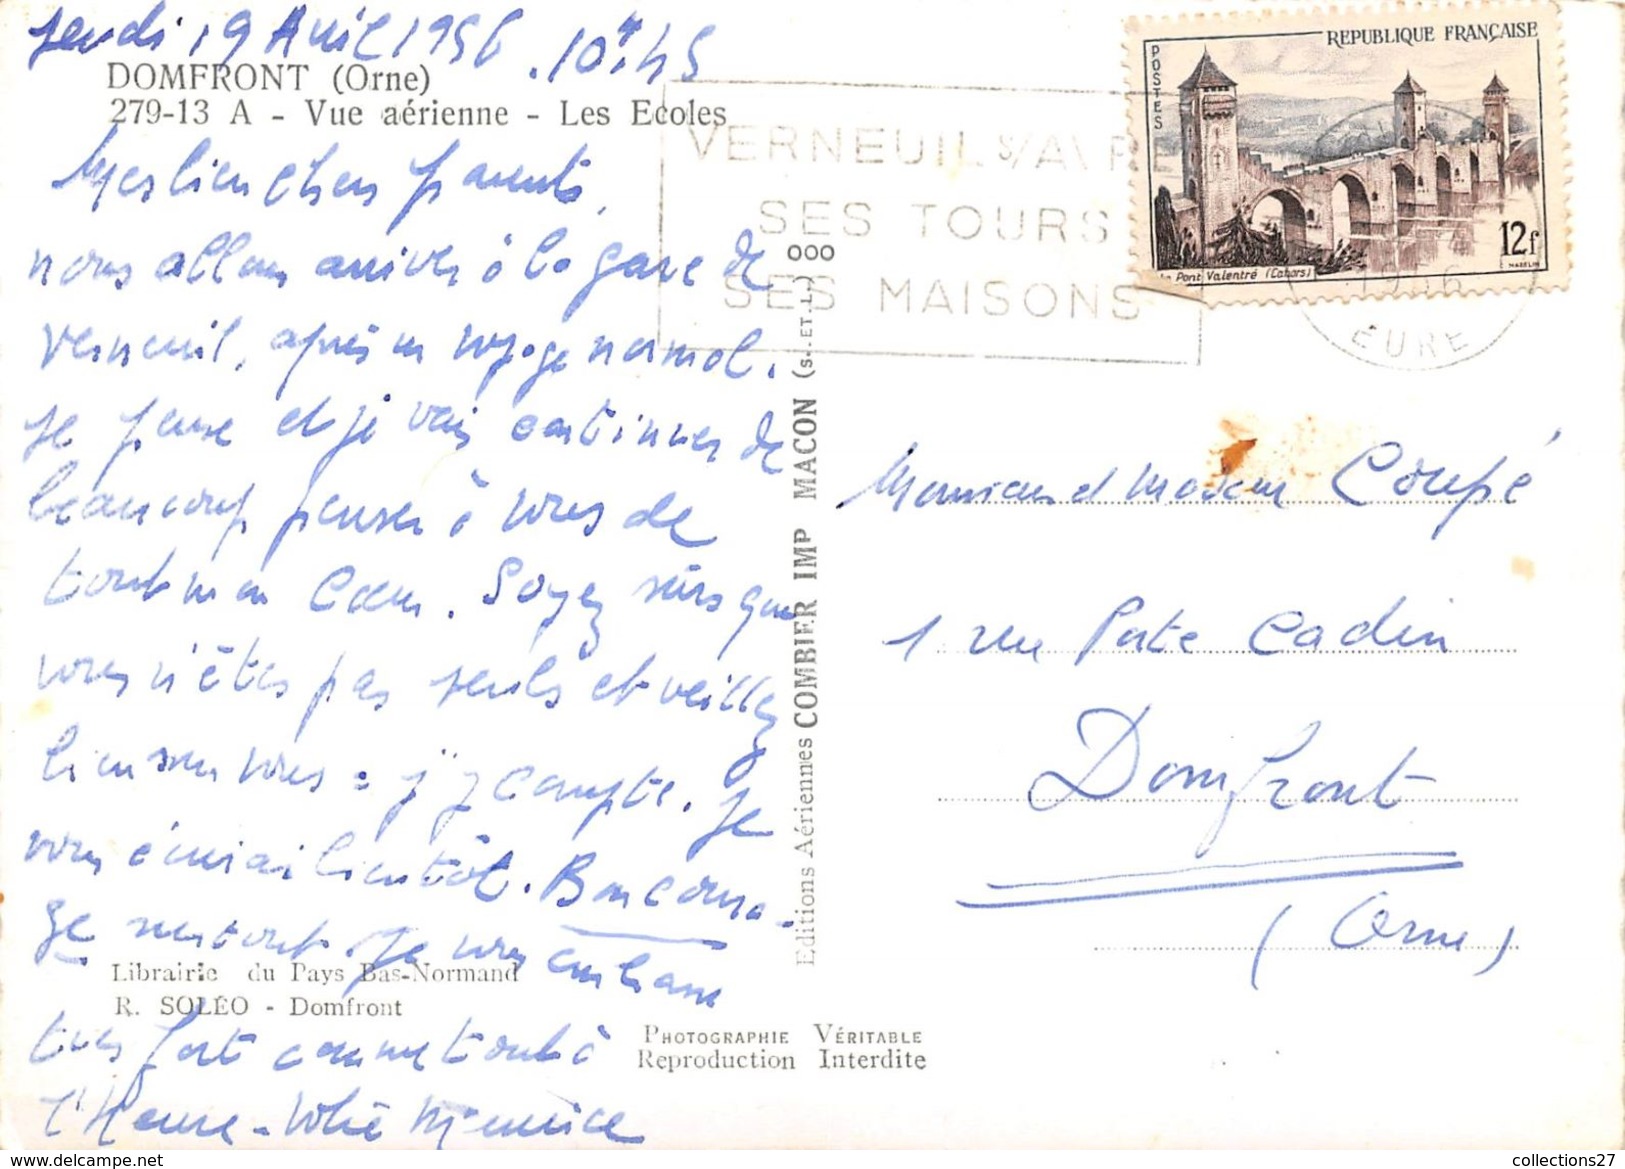 Jeudi 19 Avril 1956. 10h,45
DOMFRONT (Orne)
279-13 A - Vue aérienne - Les Ecoles
Mes bien chers parents,
nous allons arriver à la gare de
Verneuil, après un voyage normal.
Je pense et je vais continuer de
beaucoup penser à vous de
tout mon Cœur. Soyez sûrs que
vous n'êtes pas seuls et veillez
bien sur vous : j'y compte. Je
vous écrirai bientôt. Bon coura-
ge surtout. Je vous embrasse
très fort comme tout à
l'Heure - Votre Maurice
Librairie du Pays Bas-Normand
R. SOLÉO - Domfront
PHOTOGRAPHIE VÉRITABLE
Reproduction Interdite
Editions Aériennes COMBIER IMP MACON (S.-ET-L.) ooo
VERNEUIL s/AVRE
SES TOURS
SES MAISONS
REPUBLIQUE FRANÇAISE
POSTES
12f
Le Pont Valentré (Cahors)
1956
EURE
Monsieur et Madame Coupé
1 rue Porte Cadin
Domfront
(Orne)
collections27